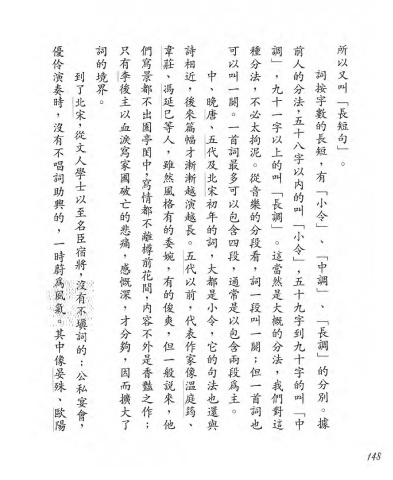 所以又叫「長短句」。
詞按字數的長短，有「小令」、「中調」、「長調」的分別。據
前人的分法，五十八字以內的叫「小令」，五十九字到九十字的叫「中
調」，九十一字以上的叫「長調」。這當然是大概的分法，我們對這
種分法，不必太拘泥。從音樂的分段看，詞一段叫一闋；但一首詞也
可以叫一闋。一首詞最多可以包含四段，通常是以包含兩段爲主。
中、晚唐、五代及北宋初年的詞，大都是小令，它的句法也還與
詩相近，後來篇幅才漸漸越演越長。五代以前，代表作家像溫庭筠、
韋莊、馮延巳等人，雖然風格有的委婉，有的俊爽，但一般說來，他
們寫景都不出園亭閨中，寫情都不離樽前花間，內容不外是香豔之作；
只有李後主以血淚寫家國破亡的悲痛，感慨深，才分夠，因而擴大了
詞的境界。
到了北宋，從文人學士以至名臣宿將，沒有不填詞的；公私宴會，
優伶演奏時，沒有不唱詞助興的，一時蔚爲風氣。其中像晏殊、歐陽
148